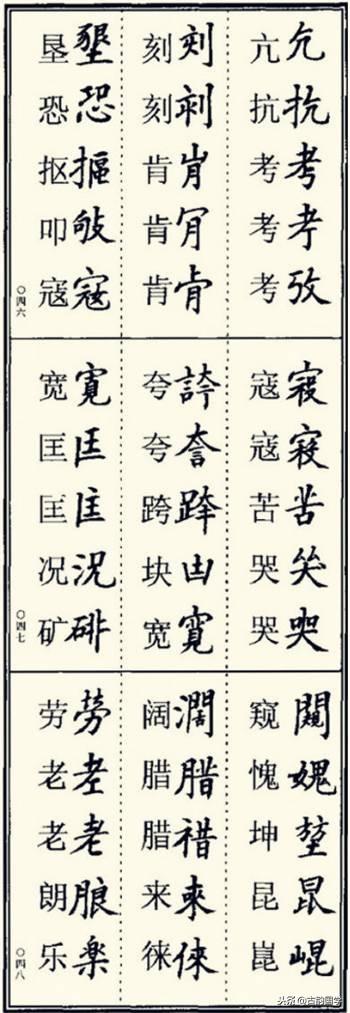 抗考攷
亢抗考考考
刻肎肯
刻刻肯肯肯
墾恐摳敂寇
垦恐抠叩寇
〇四六
苦哭
寇寇苦哭哭
誇跨凷寬
夸夸跨块宽
寛匡況
宽匡匡况矿
〇四七
闚媿堃昆崐
窥愧坤昆崑
濶腊来倈
阔腊腊来徕
勞老朖楽
劳老老朗乐
〇四八
头条@古韵国学